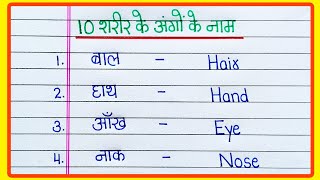 10 शरीर के अंगों के नाम
1. बाल - Hair
2. हाथ - Hand
3. आँख - Eye
4. नाक - Nose